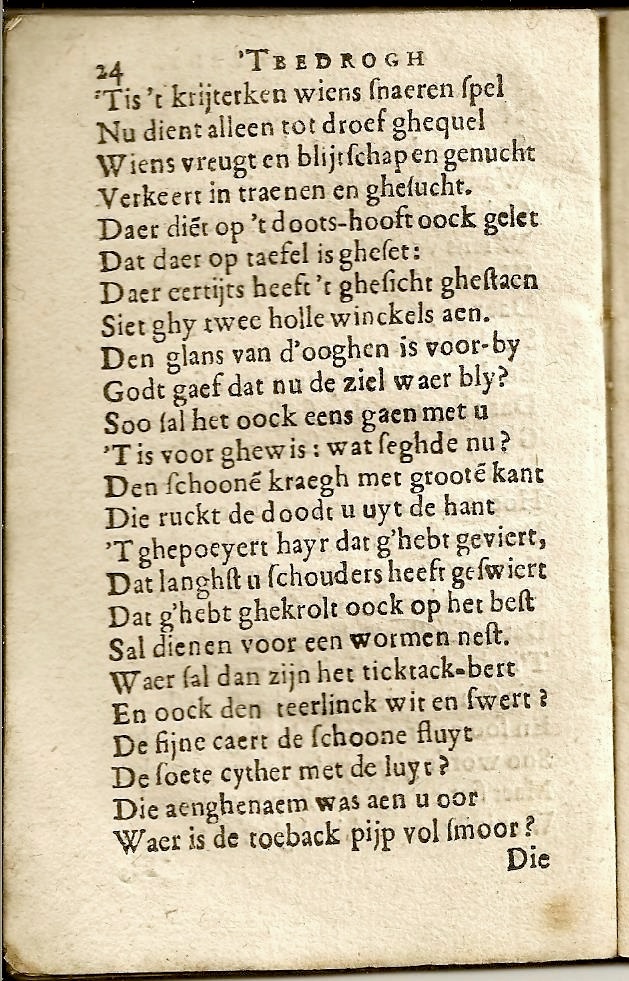 24 'TBEDROGH
'Tis 't krijterken wiens ſnaeren ſpel
Nu dient alleen tot droef ghequel
Wiens vreugt en blijtſchap en genucht
Verkeert in traenen en gheſucht.
Daer diēt op 't doots-hooft oock gelet
Dat daer op taefel is gheſet:
Daer eertijts heeft 't gheſicht gheſtaen
Siet ghy twee holle winckels aen.
Den glans van d'ooghen is voor-by
Godt gaef dat nu de ziel waer bly?
Soo ſal het oock eens gaen met u
'T is voor ghewis: wat ſeghde nu?
Den ſchoonē kraegh met grootē kant
Die ruckt de doodt u uyt de hant
'T ghepoeyert hayr dat g'hebt geviert,
Dat langhſt u ſchouders heeft geſwiert
Dat g'hebt ghekrolt oock op het beſt
Sal dienen voor een wormen neſt.
Waer ſal dan zijn het ticktack-bert
En oock den teerlinck wit en ſwert?
De fijne caert de ſchoone fluyt
De ſoete cyther met de luyt?
Die aenghenaem was aen u oor
Waer is de toeback pijp vol ſmoor?
Die